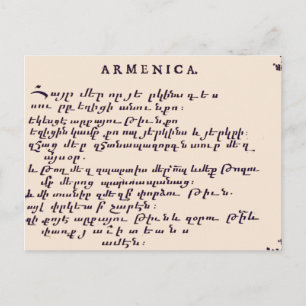 ARMENICA.
Հայր մեր որ յերկինս ես
սուրբ եղիցի անուն քո։
եկեսցէ արքայու թիւն քո
եղիցին կամք քո որպ յերկինս և յերկրի։
զհաց մեր հանապազորդ տուր մեզ
այսօր.
և թող մեզ զպարտիս մեր որպ և մեք թողումք
մք մերոց պարտապանաց։
և մի տանիր մեզ ի փորձու թիւն.
այլ փրկեա ի չարէն։
զի քոյէ արքայու թիւն և զօրու թիւն և
փառք յաւիտեանս
ամէն։